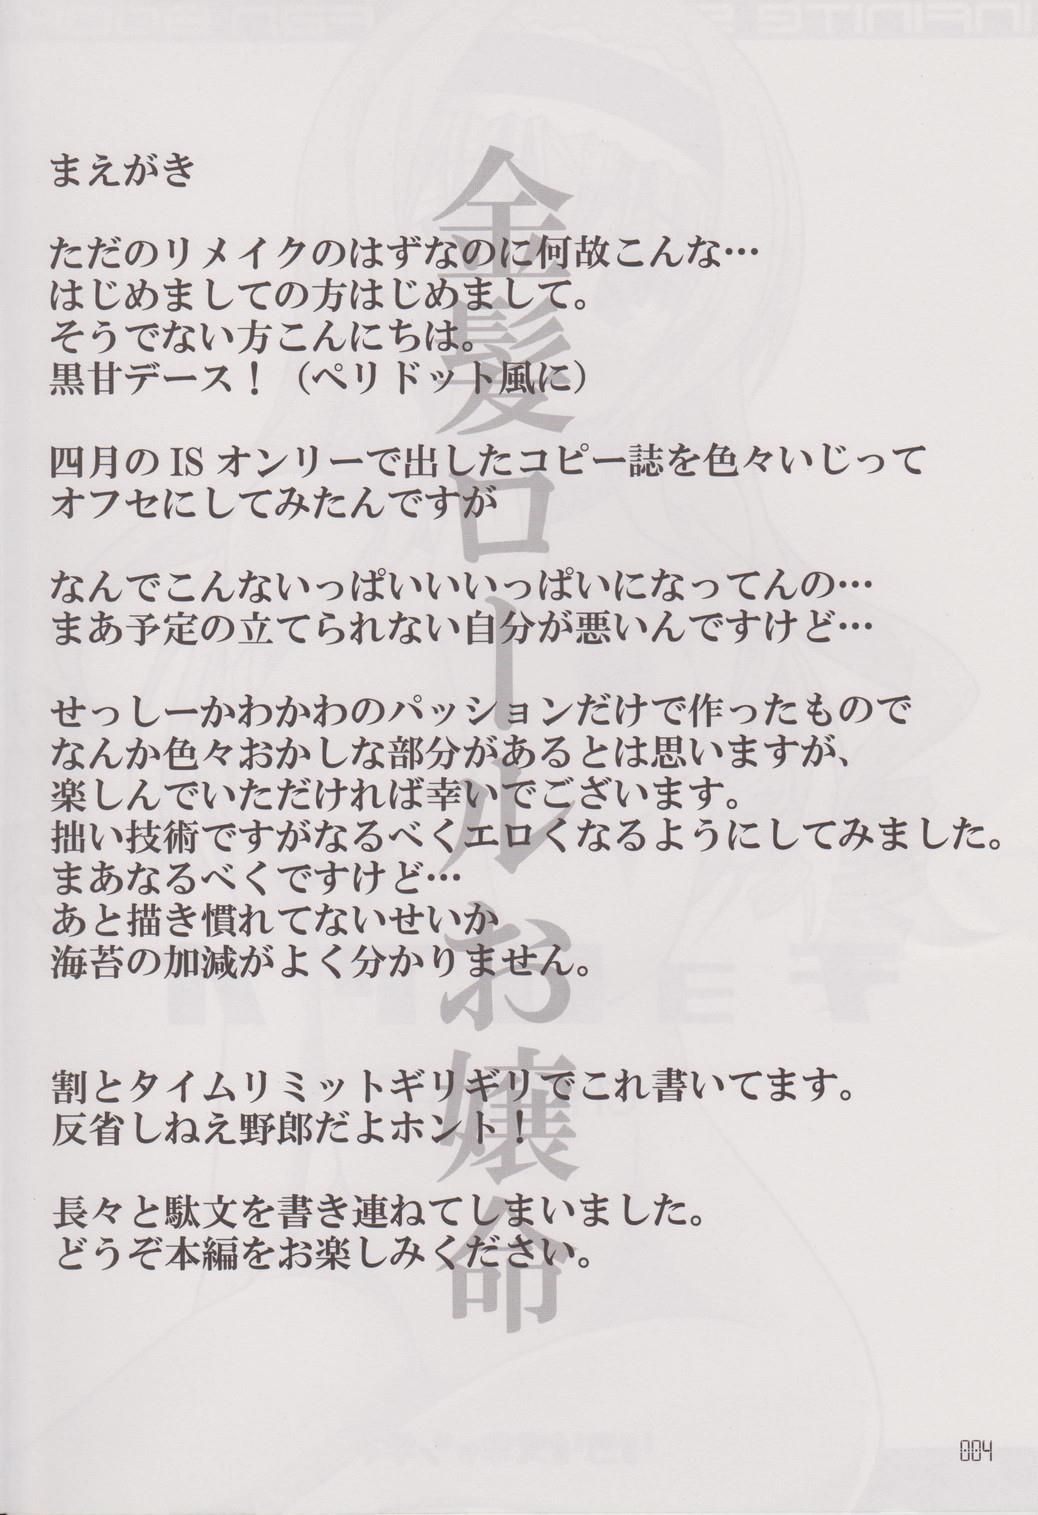 まえがき
ただのリメイクのはずなのに何故こんな…
はじめましての方はじめまして。
そうでない方こんにちは。
黒甘デース！（ペリドット風に）
四月のISオンリーで出したコピー誌を色々いじって
オフセにしてみたんですが
なんでこんないっぱいいいっぱいになってんの…
まあ予定の立てられない自分が悪いんですけど…
せっしーかわかわのパッションだけで作ったもので
なんか色々おかしな部分があるとは思いますが、
楽しんでいただければ幸いでございます。
拙い技術ですがなるべくエロくなるようにしてみました。
まあなるべくですけど…
あと描き慣れてないせいか
海苔の加減がよく分かりません。
割とタイムリミットギリギリでこれ書いてます。
反省しねえ野郎だよホント！
長々と駄文を書き連ねてしまいました。
どうぞ本編をお楽しみください。
金髪ロールお嬢命
004